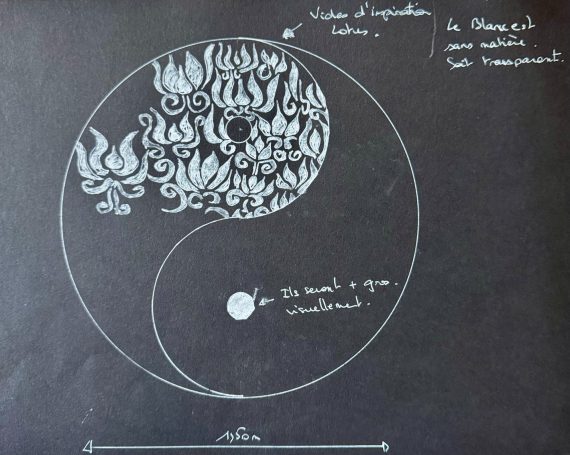 Vides d'inspiration
Lotus.
Le Blanc est
sans matière.
Soit transparent.
Ils seront + gros.
visuellement.
1,50m